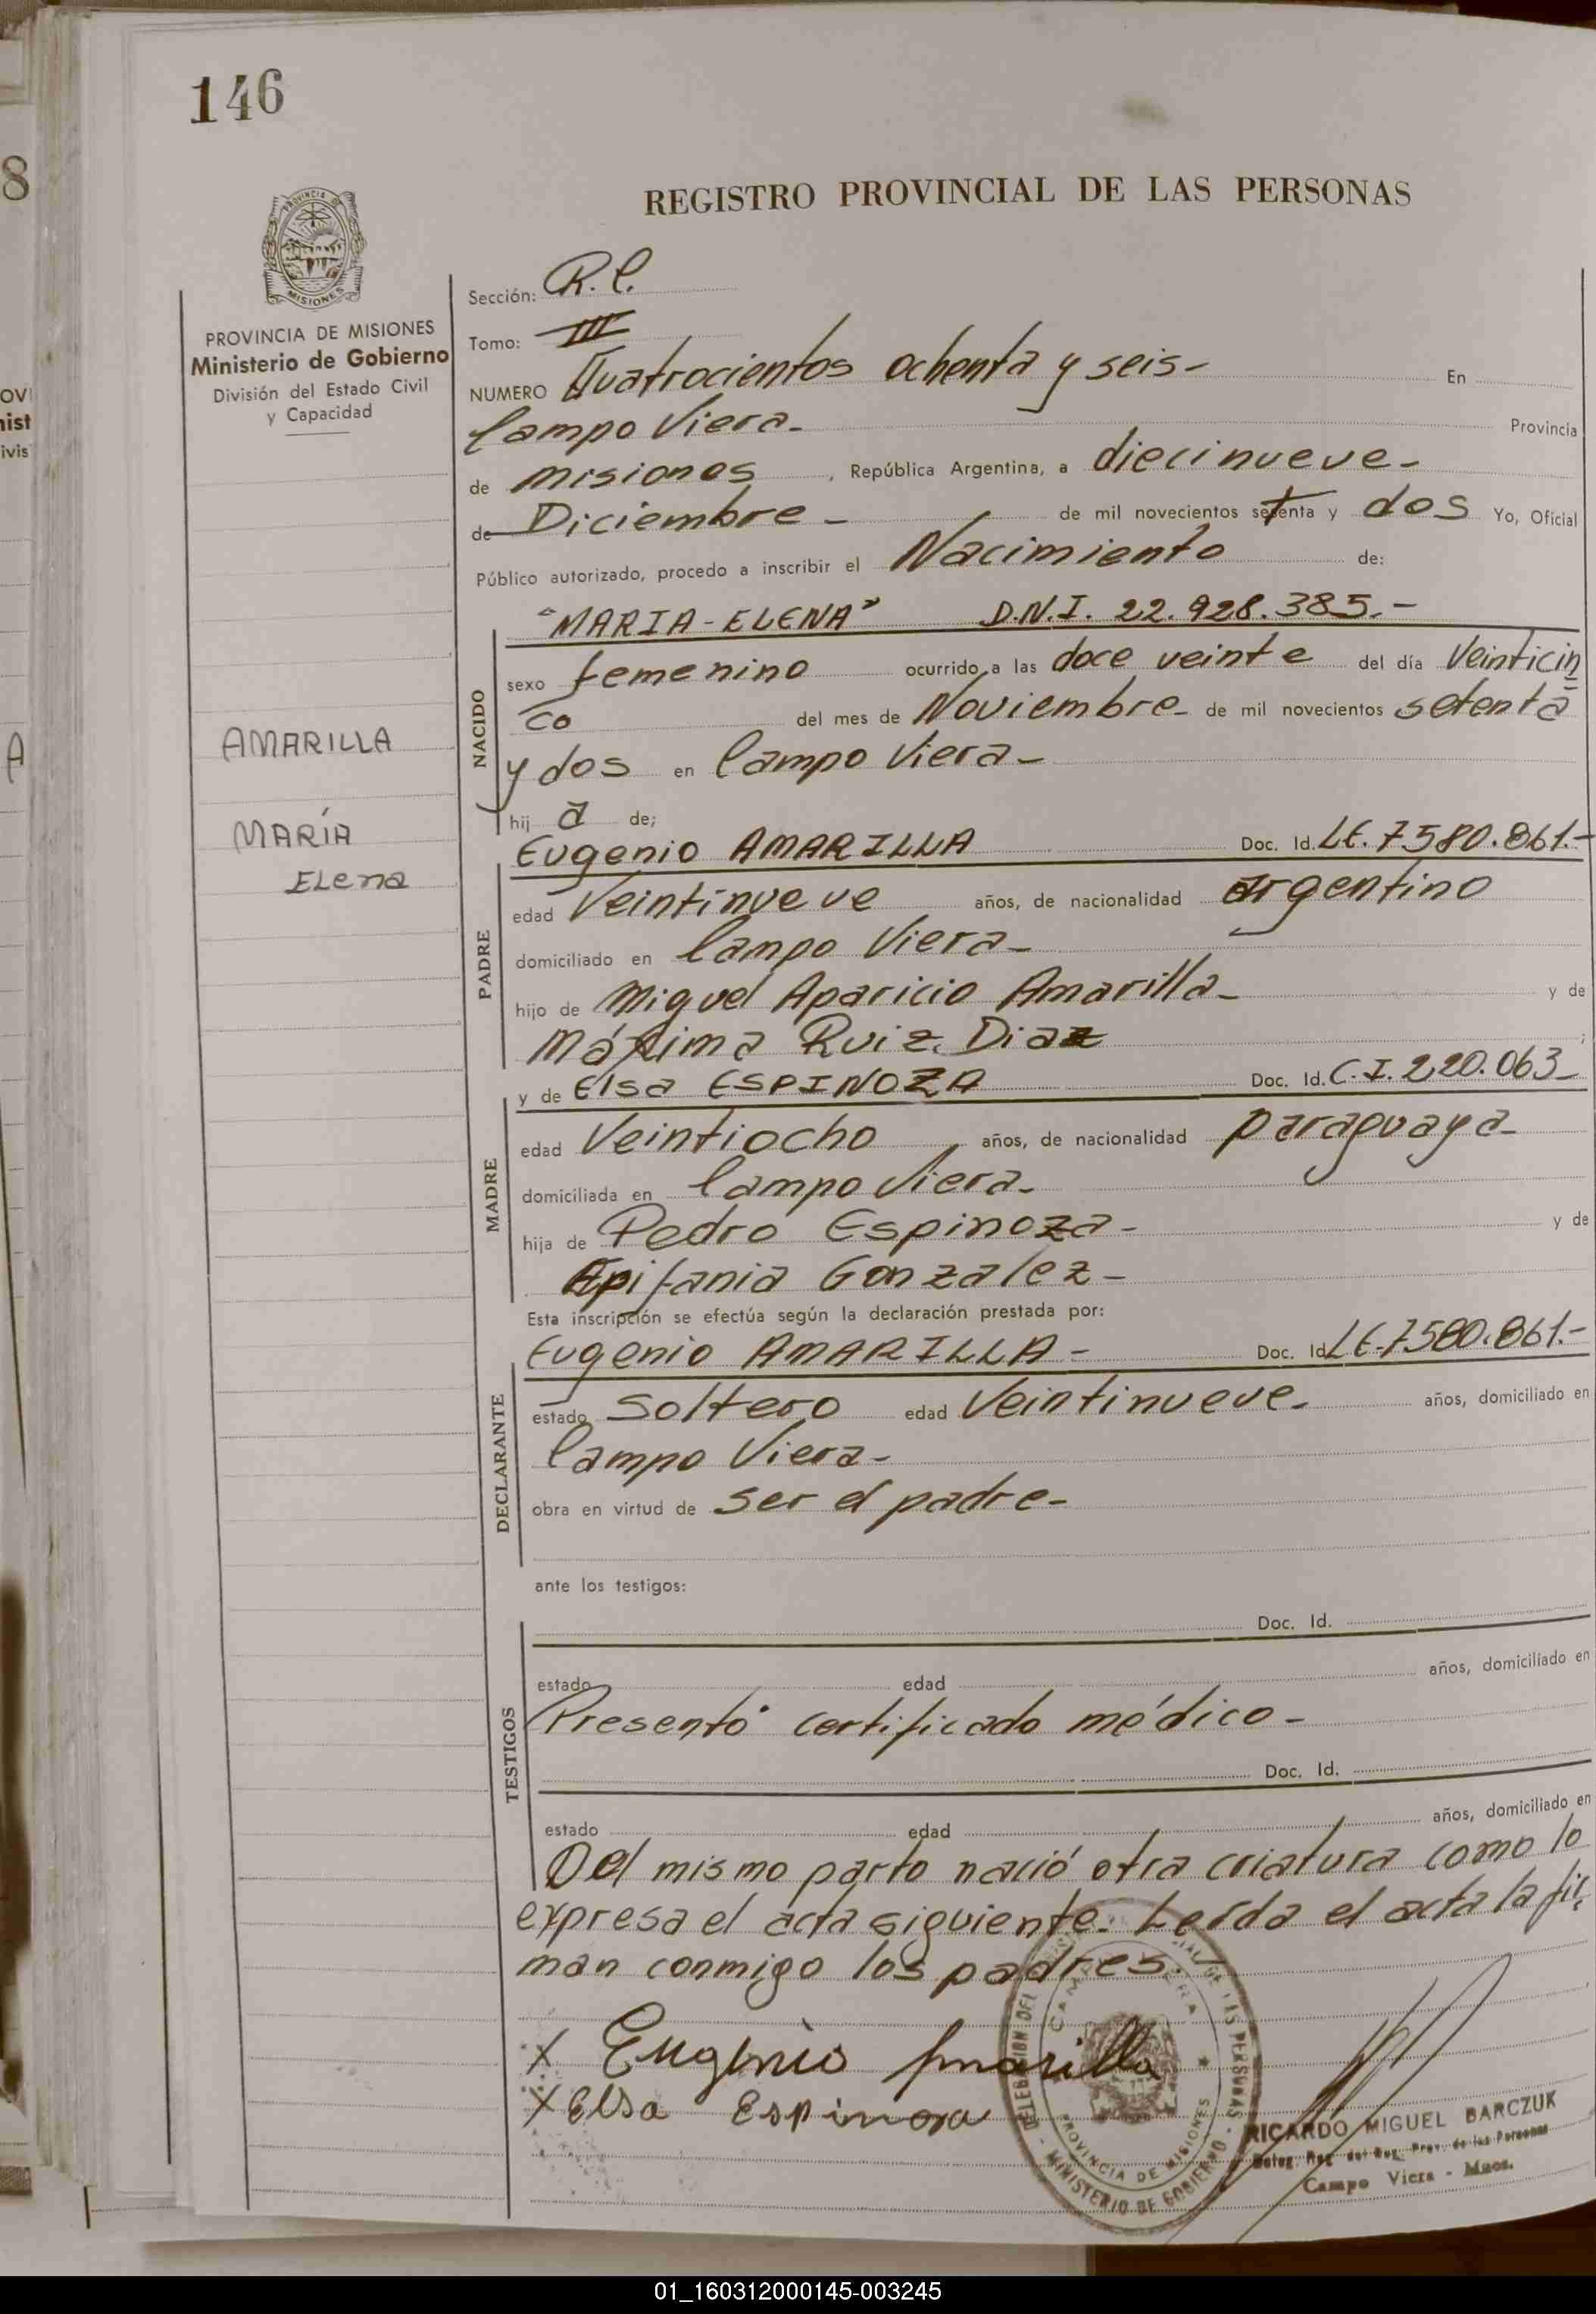 146
8
REGISTRO PROVINCIAL DE LAS PERSONAS
MISIONES
PROVINCIA DE MISIONES
Ministerio de Gobierno
División del Estado Civil
y Capacidad
Sección: R.C.
Tomo: III
NUMERO Cuatrocientos ochenta y seis- En
Campo Viera- Provincia
de misiones, República Argentina, a diecinueve-
de Diciembre- de mil novecientos setenta y dos Yo, Oficial
Público autorizado, procedo a inscribir el Nacimiento de:
"MARIA-ELENA" D.N.I. 22.928.385.-
NACIDO
sexo femenino ocurrido a las doce veinte del día Veinticin
co del mes de Noviembre- de mil novecientos setenta
y dos en Campo Viera-
hij a de;
AMARILLA
MARÍA
ELena
Eugenio AMARILLA Doc. Id. LE. 7.580.861.-
PADRE
edad Veintinueve años, de nacionalidad argentino
domiciliado en Campo Viera-
hijo de Miguel Aparicio Amarilla- y de
Máxima Ruiz Diaz ;
y de Elsa ESPINOZA Doc. Id. C.I. 220.063-
MADRE
edad Veintiocho años, de nacionalidad paraguaya-
domiciliada en Campo Viera-
hija de Pedro Espinoza- y de
Epifania Gonzalez-
Esta inscripción se efectúa según la declaración prestada por:
Eugenio AMARILLA- Doc. Id LE.7580.861.-
DECLARANTE
estado Soltero edad Veintinueve- años, domiciliado en
Campo Viera-
obra en virtud de ser el padre-
ante los testigos:
Doc. Id.
TESTIGOS
estado edad años, domiciliado en
Presentó certificado médico-
Doc. Id.
estado edad años, domiciliado en
Del mismo parto nació otra criatura como lo
expresa el acta siguiente. Leída el acta la fir
man conmigo los padres.
X Eugenio Amarilla
X Elsa Espinoza
PROVINCIA DE MISIONES
MINISTERIO DE GOBIERNO
RICARDO MIGUEL BARCZUK
Campo Viera - Mnes.
01_160312000145-003245